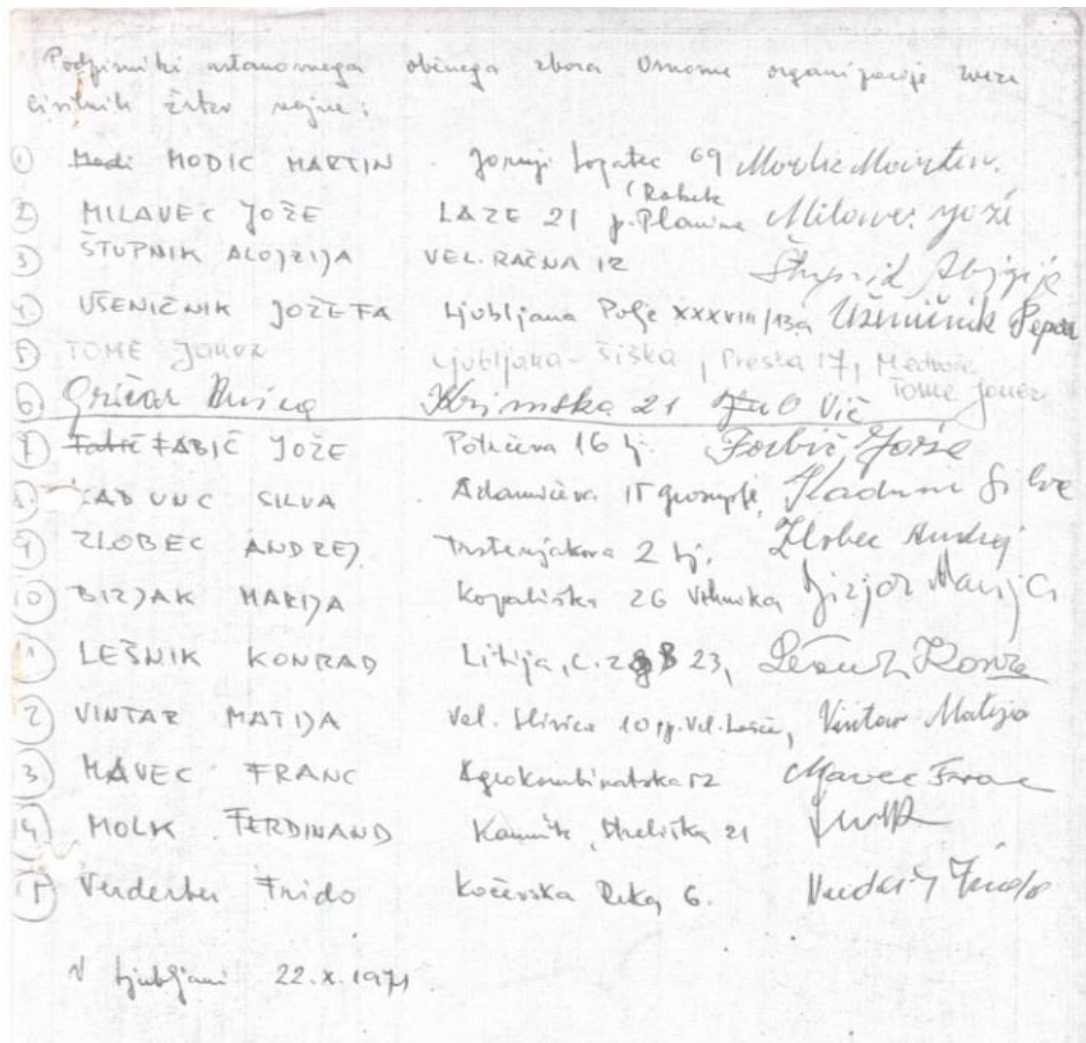 Podpisniki ustanovnega občnega zbora Osnovne organizacije zveze
civilnih žrtev vojne:
1) Modi MODIC MARTIN . Gornji Logatec 69 Modic Martin.
(Rakek
2) MILAVEC JOŽE LAZE 21 p. Planina Milavec Jože
3) ŠTUPNIK ALOJZIJA VEL. RAČNA 12 Štupnik Alojzija
4. UŠENIČNIK JOŽEFA Ljubljana Polje XXXVIII/13a Ušeničnik Pepca
5) TOME Janez Ljubljana - Šiška, Preska 17, Medvode
Tome Janez
6. Gričar Krimska 21 Vič
7) Fabič FABIČ JOŽE Potrčeva 16 Lj. Fabič Jože
8) ADUNC SILVA . Adamičeva 15 Grosuplje, Kadunc Silva
9) ZLOBEC ANDREJ. Trstenjakova 2 Lj. Zlobec Andrej
10) BIZJAK MARIJA Kopališka 26 Vrhnika Bizjak Marija
11) LEŠNIK KONRAD Litija, C. 23, Lešnik
12) VINTAR MATIJA Vel. Slivica 10 pp. Vel. Lašče, Vintar Matija
13) MAVEC FRANC Agrokombinatska 12 Mavec Franc
14) MOLK FERDINAND Kamnik, Streliška 21
15) Verderber Frido Kočevska Reka 6. Frido
V Ljubljani 22.X.1971.